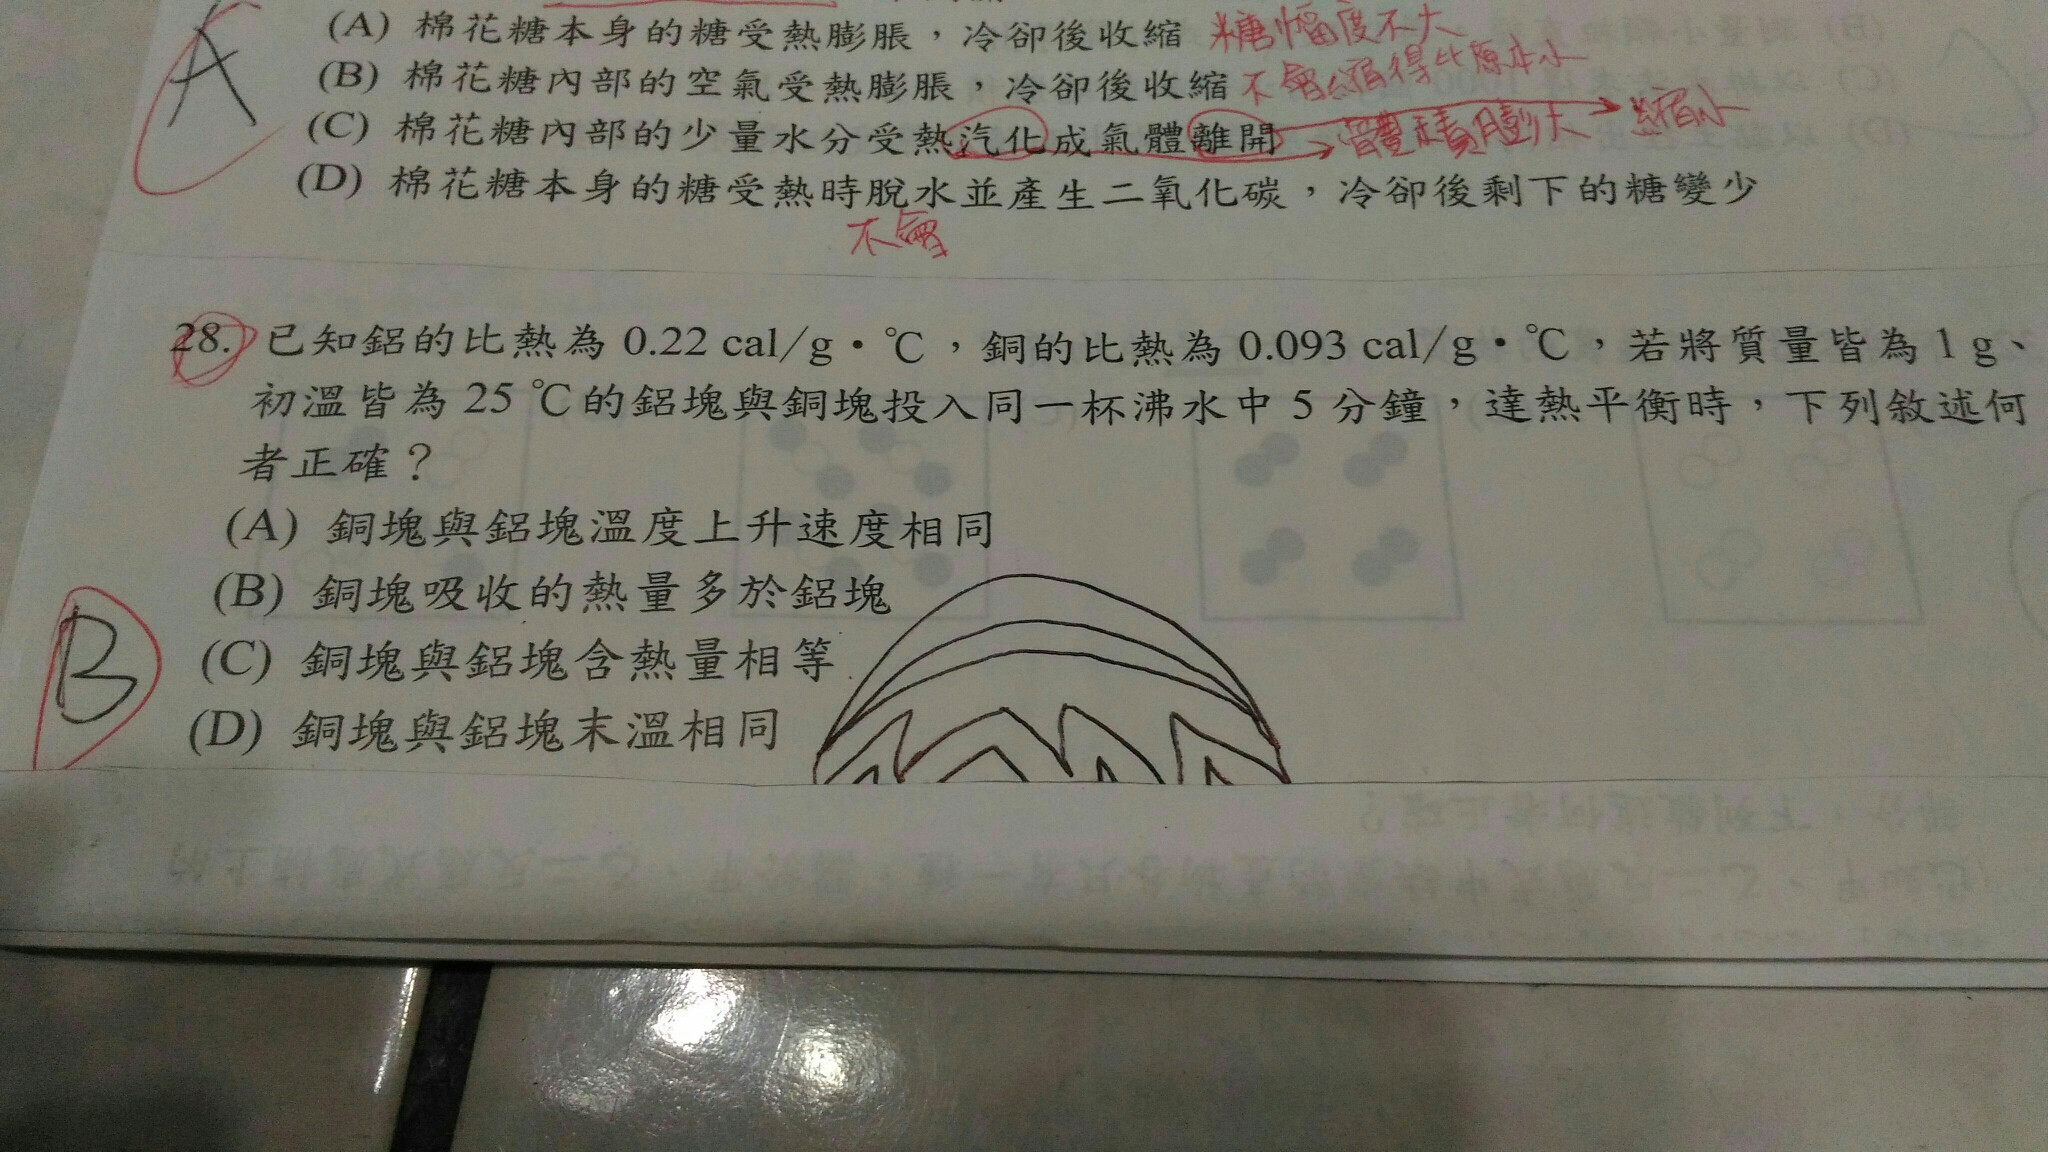 A
(A) 棉花糖本身的糖受熱膨脹，冷卻後收縮 糖幅度不大
(B) 棉花糖內部的空氣受熱膨脹，冷卻後收縮 不會縮得比原本小
(C) 棉花糖內部的少量水分受熱汽化成氣體離開 體積膨大 縮小
(D) 棉花糖本身的糖受熱時脫水並產生二氧化碳，冷卻後剩下的糖變少
不會
28. 已知鋁的比熱為 0.22 cal/g·℃，銅的比熱為 0.093 cal/g·℃，若將質量皆為 1 g、
初溫皆為 25 ℃的鋁塊與銅塊投入同一杯沸水中 5 分鐘，達熱平衡時，下列敘述何
者正確？
(A) 銅塊與鋁塊溫度上升速度相同
(B) 銅塊吸收的熱量多於鋁塊
B
(C) 銅塊與鋁塊含熱量相等
(D) 銅塊與鋁塊末溫相同